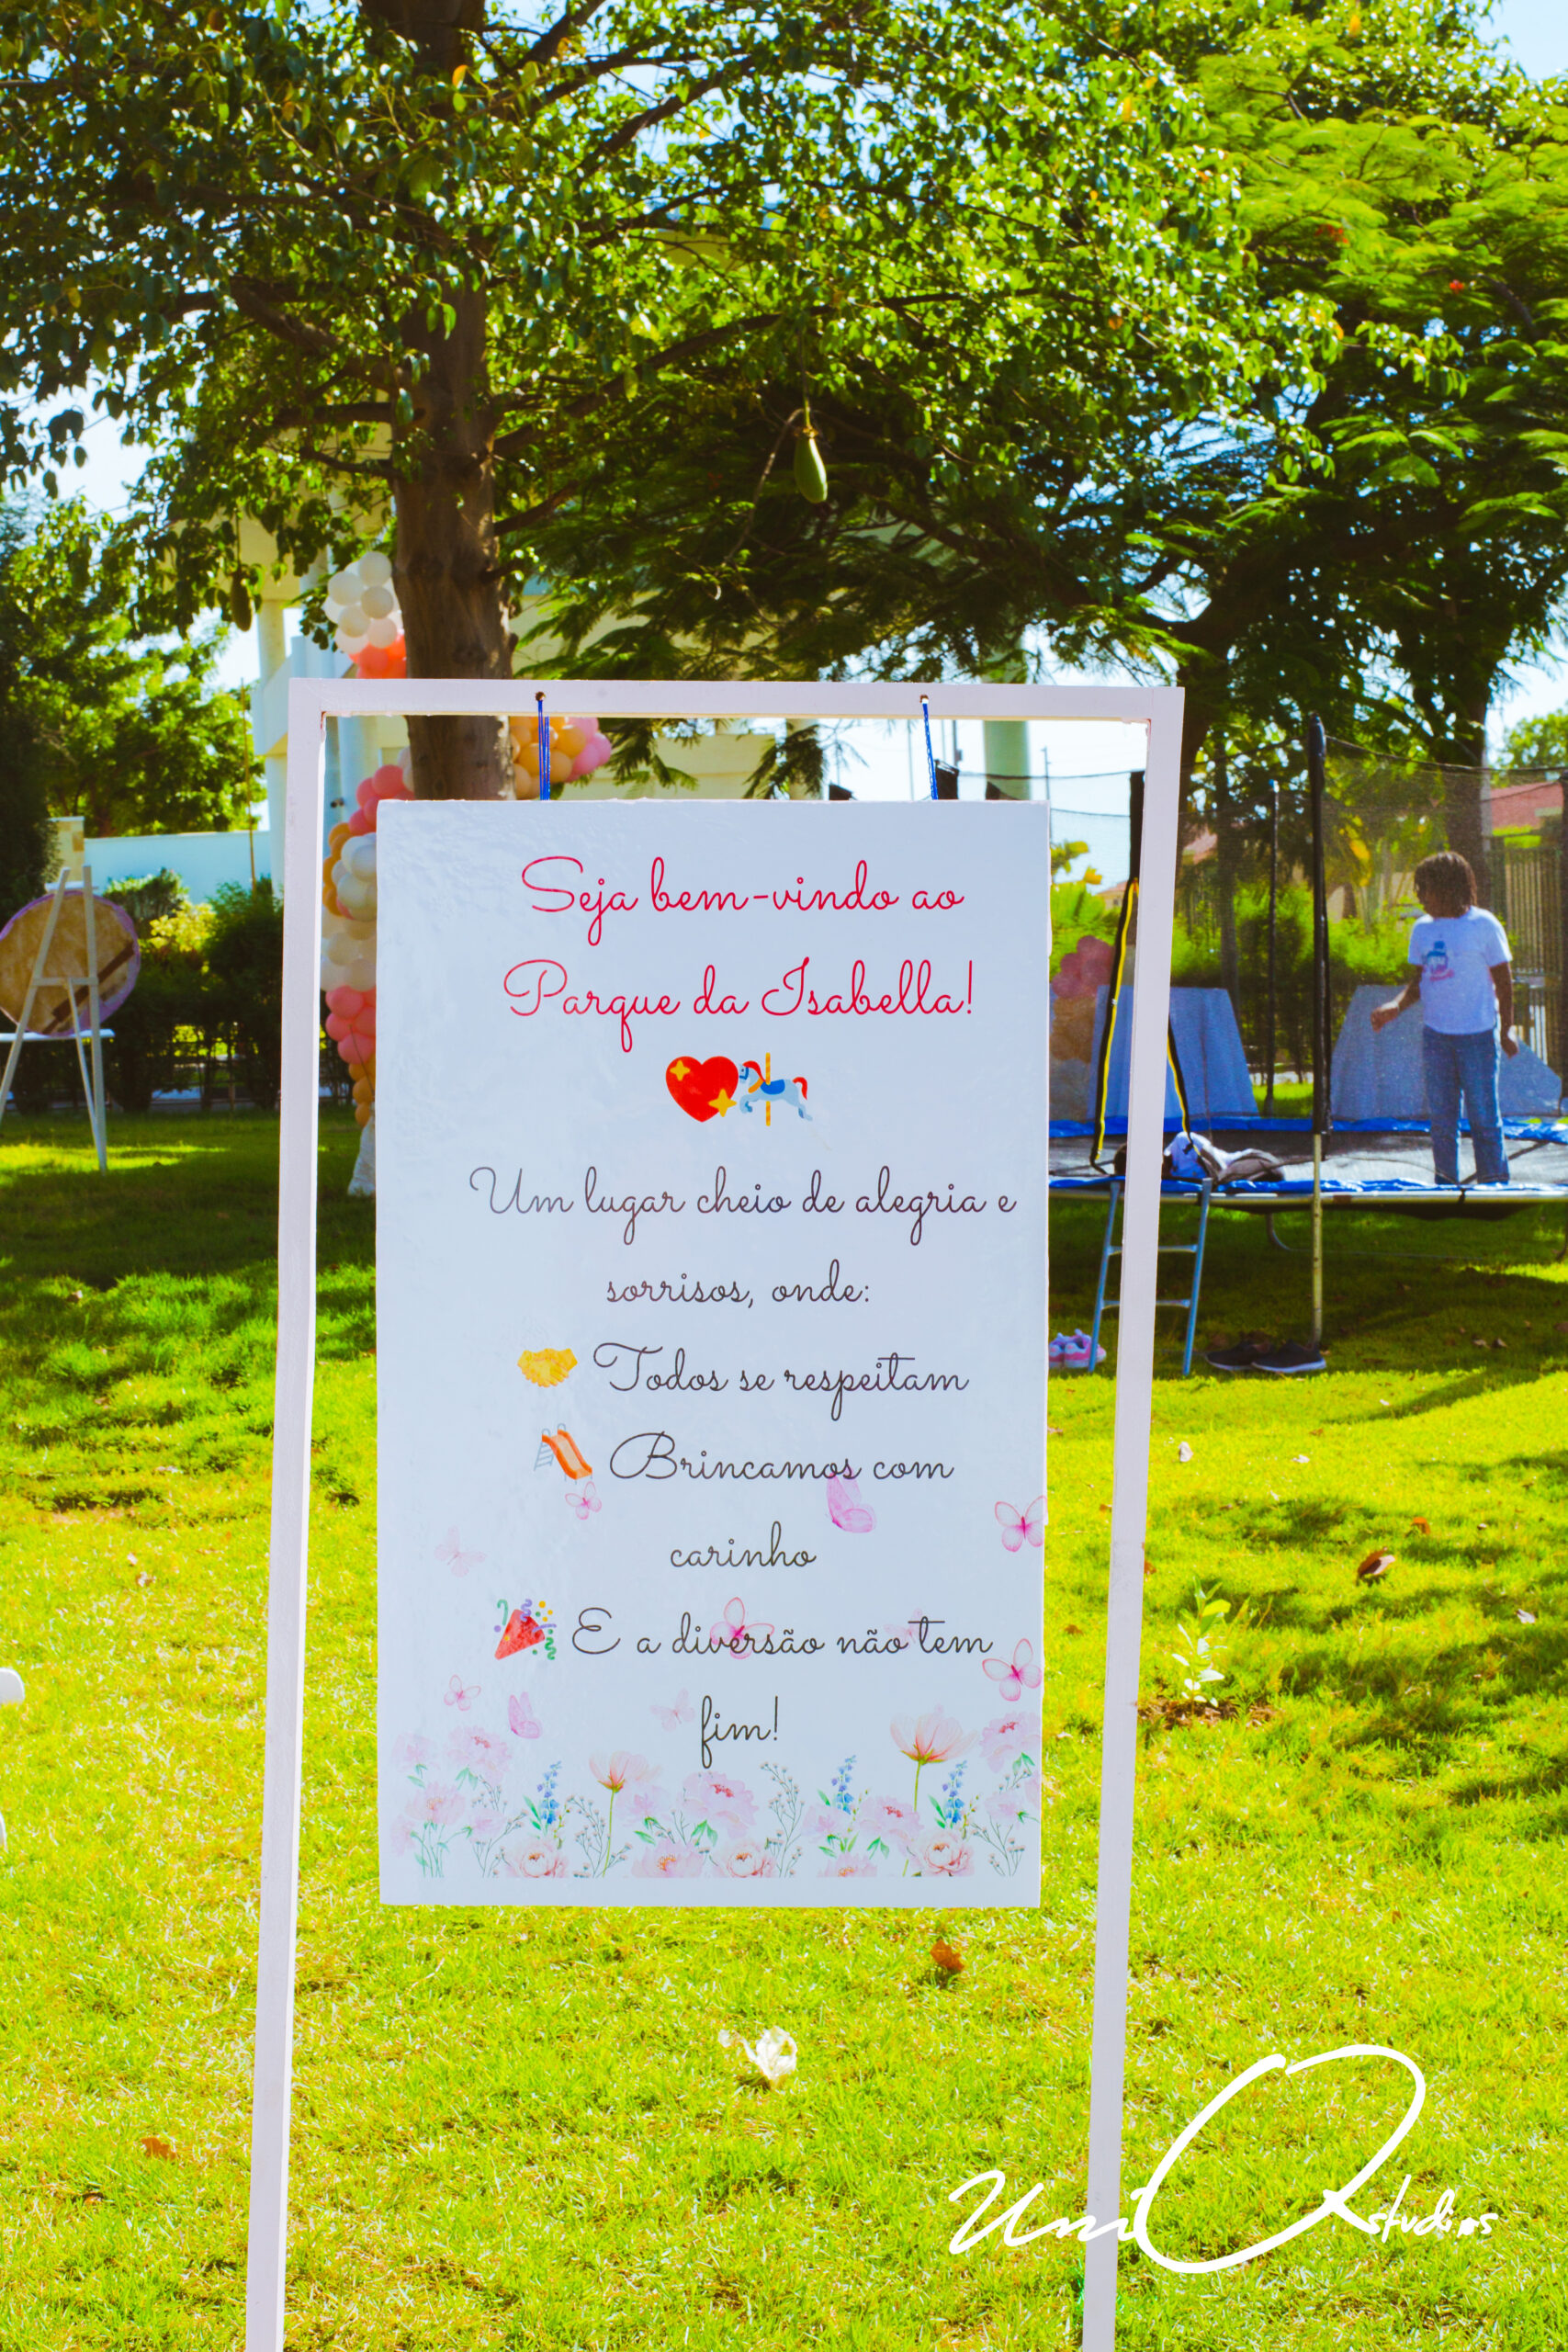 Seja bem-vindo ao
Parque da Isabella!
Um lugar cheio de alegria e
sorrisos, onde:
Todos se respeitam
Brincamos com
carinho
E a diversão não tem
fim!
UniQ studios